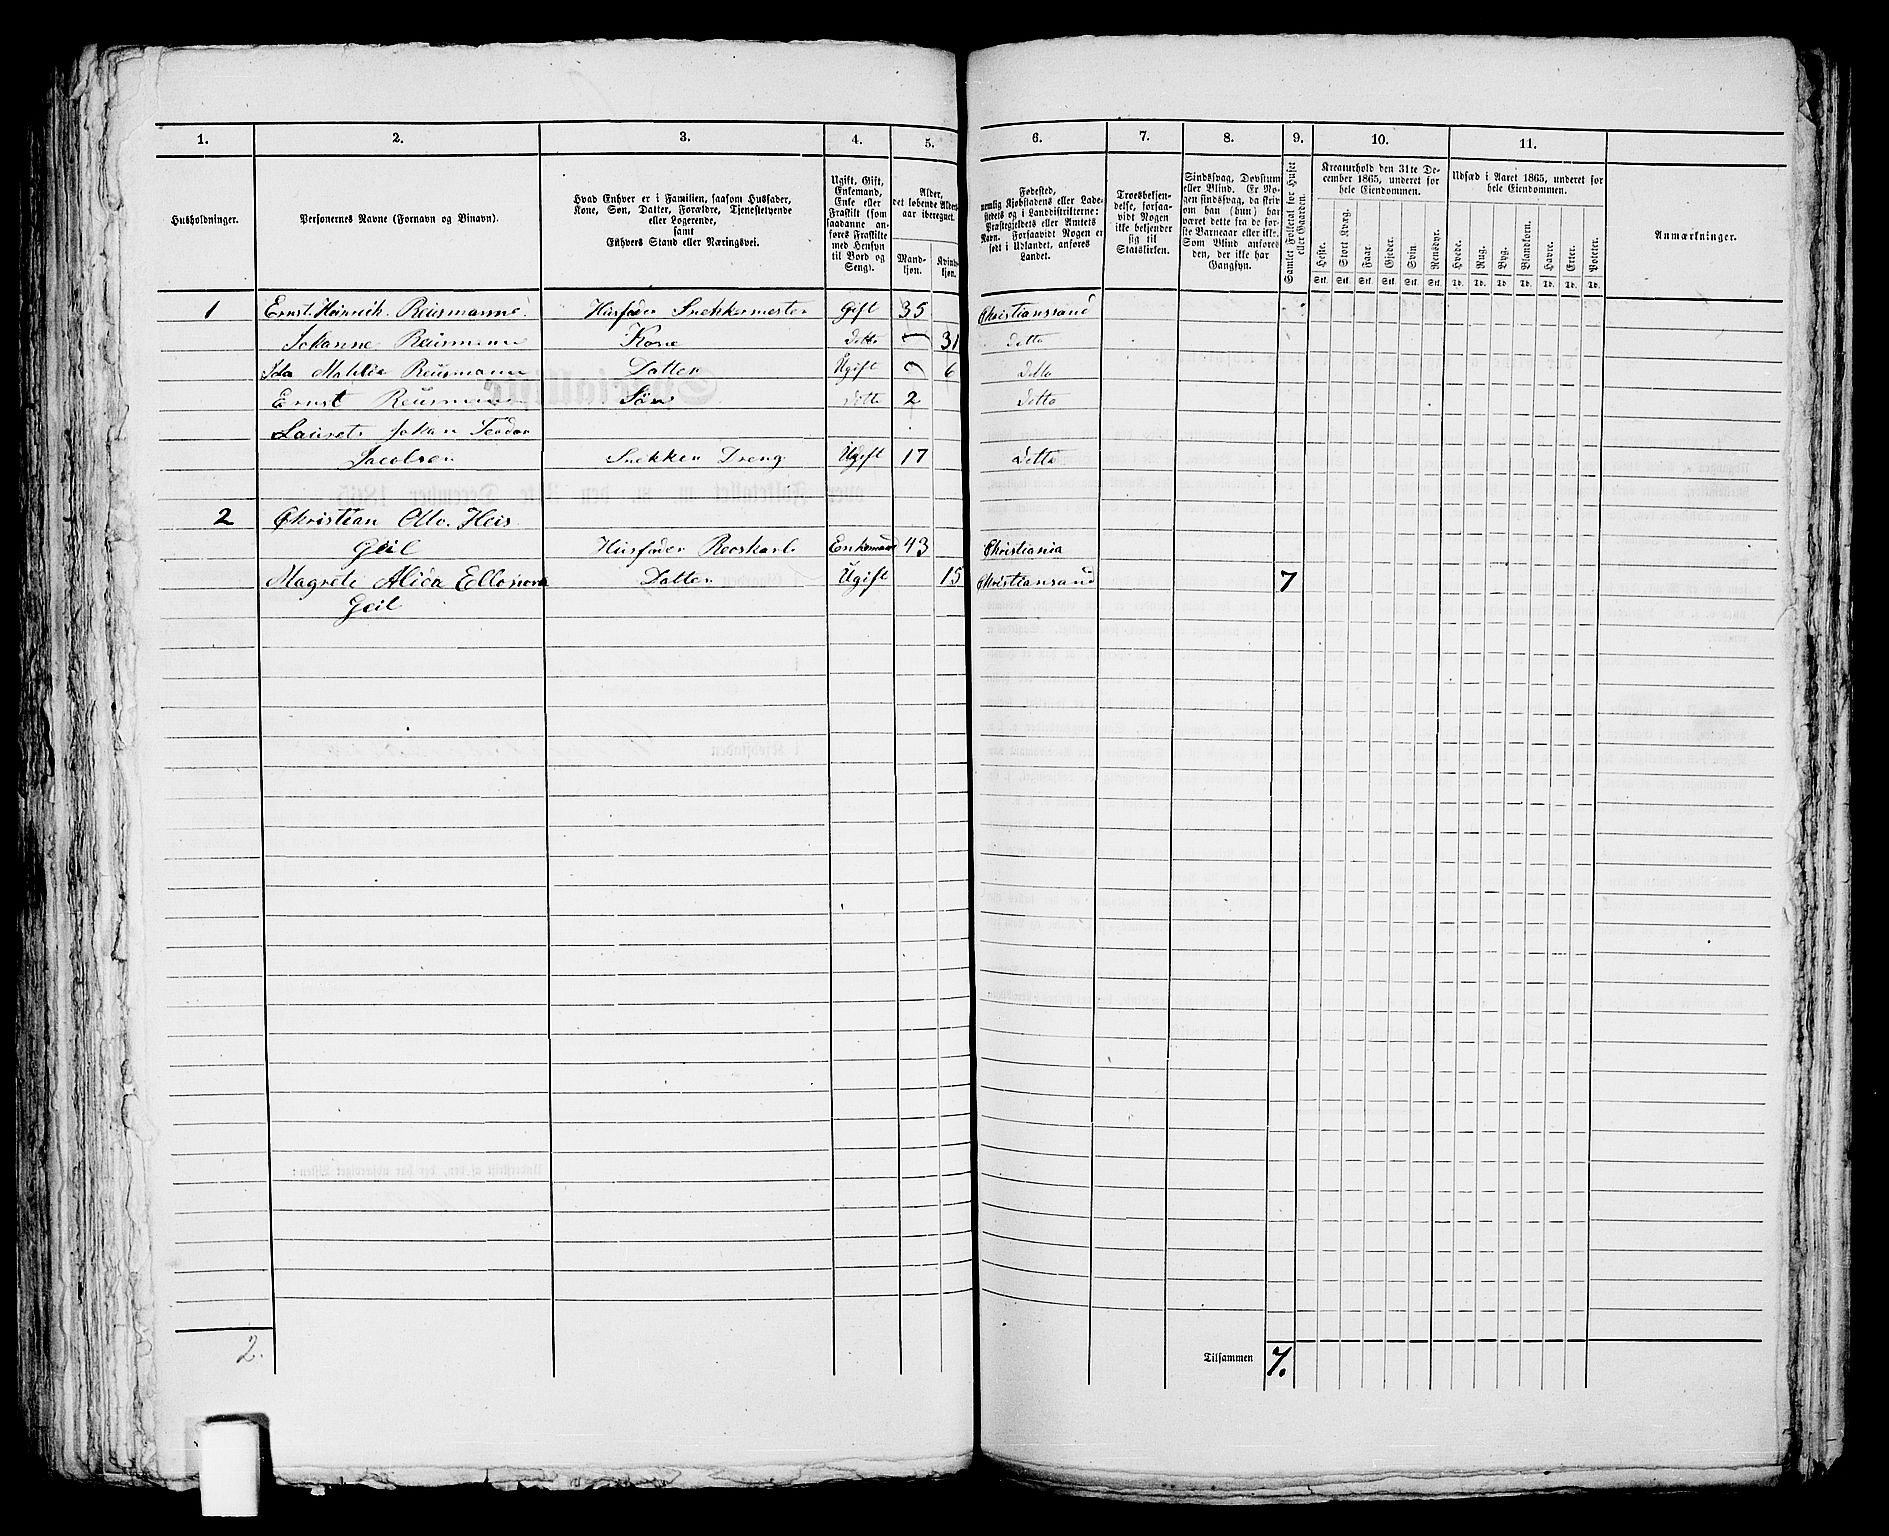 1. 2. 3. 4. 5. 6. 7. 8. 9. 10. 11.
Husholdninger.
Personernes Navne (Fornavn og Binavn).
Hvad Enhver er i Familien, saasom Husfader,
Kone, Søn, Datter, Forældre, Tjenestetyende
eller Logerende,
samt
Enhvers Stand eller Næringsvei.
Ugift, Gift,
Enkemand,
Enke eller
Fraskilt (som
saadanne an-
føres Fraskilte
med Hensyn
til Bord og
Seng).
Alder,
det løbende Alders-
aar iberegnet.
Mand-
kjøn.
Kvind-
kjøn.
Fødested,
nemlig Kjøbstadens eller Lade-
stedets og i Landdistrikterne:
Præstegjeldets eller Amtets
Navn. Forsaavidt Nogen er
født i Udlandet, anføres
Landet.
Troesbekjen-
delse, forsaa-
vidt Nogen
ikke bekjender
sig til
Statskirken.
Sindssvag, Døvstum
eller Blind. Er No-
gen sindssvag, da skriv
om han (hun) har
været dette fra de før-
ste Barneaar eller ikke.
Som Blind anføres
den, der ikke har
Gangsyn.
Samlet Folketal for Huset
eller Gaarden.
Kreaturhold den 31te De-
cember 1865, underet for
hele Eiendommen.
Heste. Stort Kvæg. Faar. Gjeder. Svin Rensdyr.
Stk. Stk. Stk. Stk. Stk. Stk.
Udsæd i Aaret 1865, underet for
hele Eiendommen.
Hvede. Rug. Byg. Blandkorn. Havre. Erter. Poteter.
Td. Td. Td. Td. Td. Td. Td.
Anmærkninger.
1 Ernst Heinrich Reusmanne Husfader Snekkermester Gift 35 Christianssand
Johanne Reusmann Kone Ditto 31 Ditto
Ida Matilda Reusmann Datter Ugift 6 Ditto
Ernst Reusmann Søn Ditto 2 Ditto
Laurets Johan Teodor
Jacobsen Snekker Dreng Ugift 17 Ditto
2 Christian Otto Heis
Geil Husfader Enkemand 43 Christiania
Magrete Alida Ellonora Datter Ugift 15 Christiansand 7
Geil
2.
Tilsammen 7.